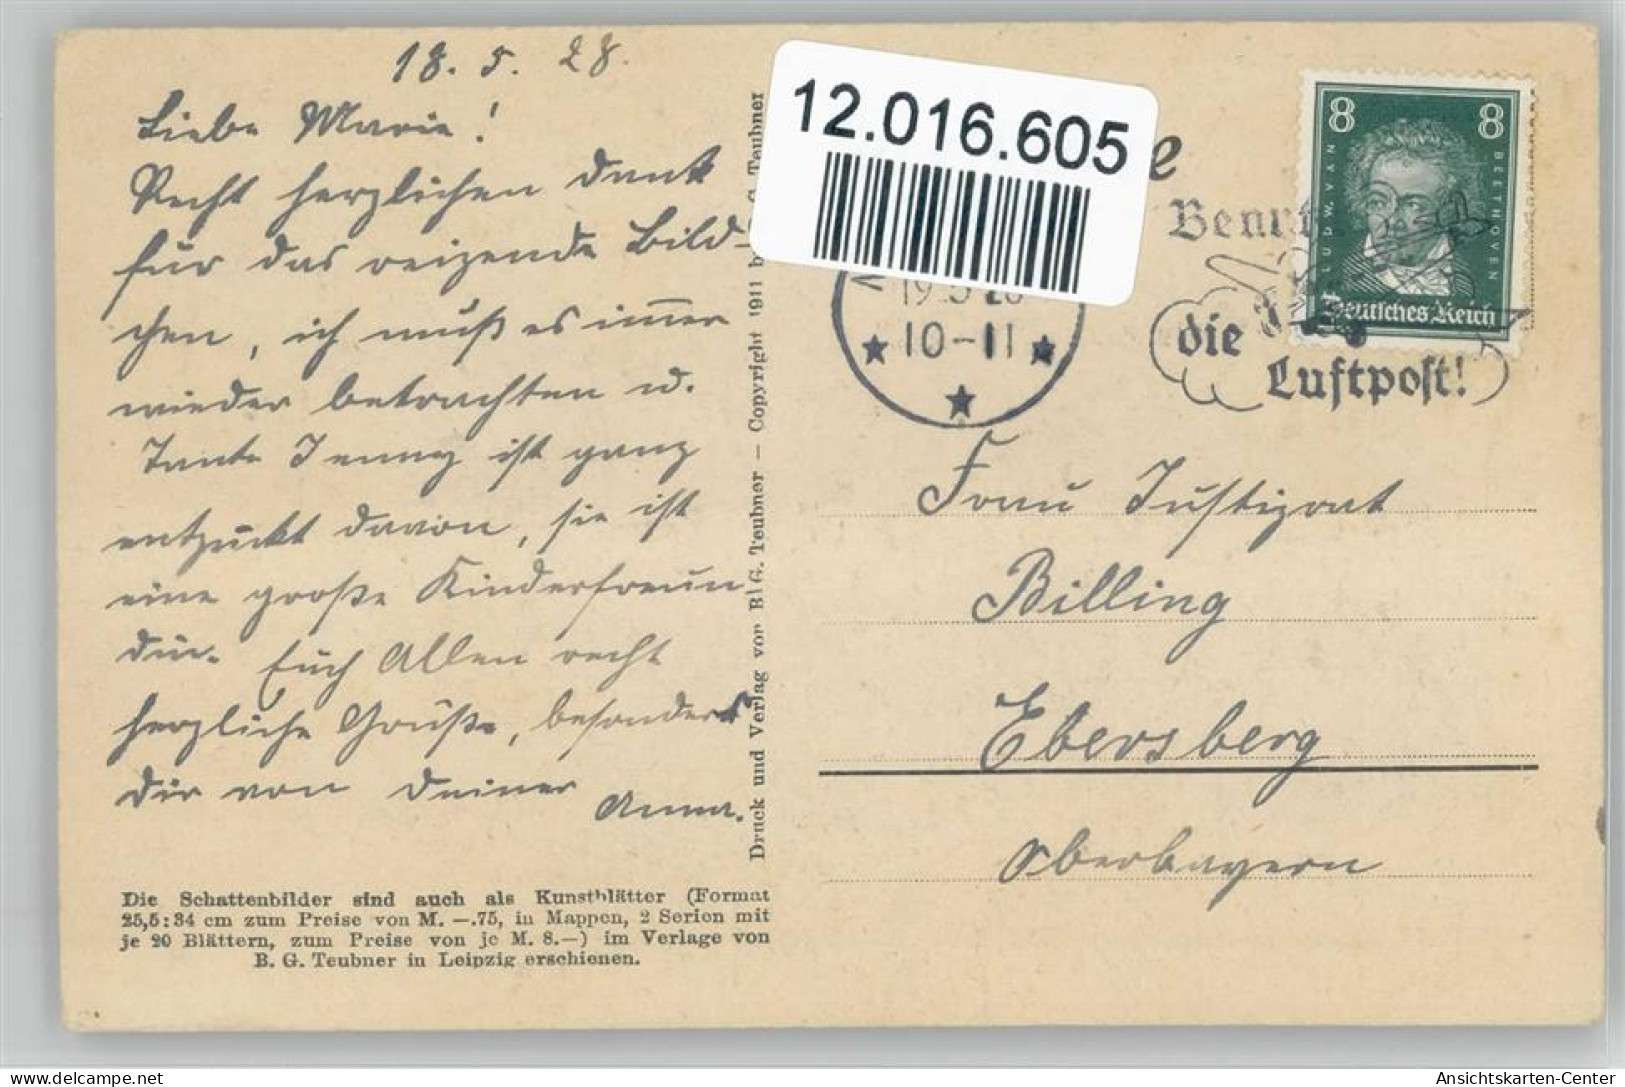 18. 5. 28.
Liebe Marie!
Recht herzlichen Dank
für das reizende Bild-
chen, ich muß es immer
wieder betrachten u.
Tante Jenny ist ganz
entzückt davon, sie ist
eine große Kinderfreun
din. Euch Allen recht
herzliche Grüße, besonders
Dir von Deiner Anna.
Die Schattenbilder sind auch als Kunstblätter (Format
25,5:34 cm zum Preise von M. —.75, in Mappen, 2 Serien mit
je 20 Blättern, zum Preise von je M. 8.—) im Verlage von
B. G. Teubner in Leipzig erschienen.
Druck und Verlag von B. G. Teubner — Copyright 1911 b G. Teubner
12.016.605
e
8 8
LUDW. VAN BEETHOVEN
Deutsches Reich
19.5 28
10-11
die
Luftpost!
Frau Justizrat
Billing
Ebersberg
Oberbayern
www.delcampe.net
Ansichtskarten-Center